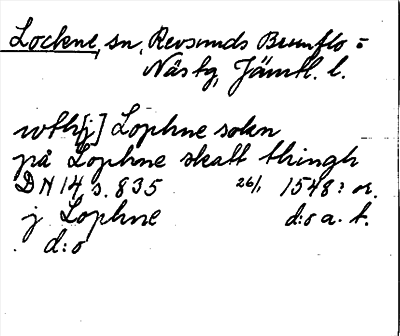 Lockne, sn, Revsunds Brunflo o
Näs tg, Jämtl. l.
wthj[j] Lophne sokn
på Lophne skatt thingh
DN 14, s. 835 26/1 1548: or.
j Lophne d:o a. k.
d:o